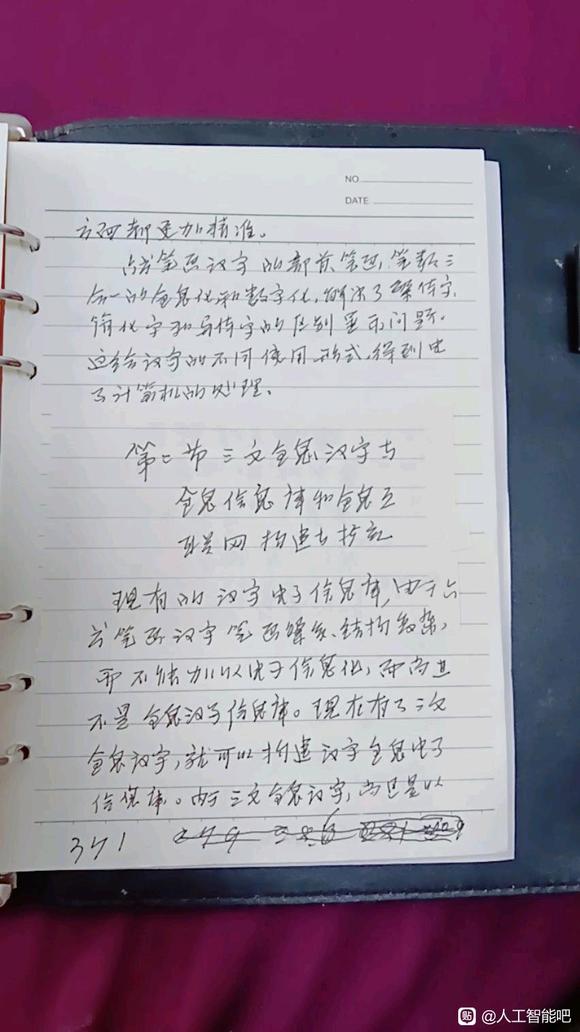 NO
DATE
方面都更加精准。
六书笔画汉字的部首、笔画、笔数三
合一的全息化和数字化,解决了繁体字、
简化字和异体字的区别显示问题。
这给汉字的不同使用形式,得到电
子计算机的处理。
第二节 三文全息汉字与
全息信息库和全息互
联网构建与扩充
现有的汉字电子信息库,由于六
书笔画汉字笔画繁多、结构复杂,
而不能加以电子信息化,而而且
不是全息汉字信息库。现在有了三文
全息汉字,就可以构建汉字全息电子
信息库。由于三文全息汉字,而且是以
371
@人工智能吧